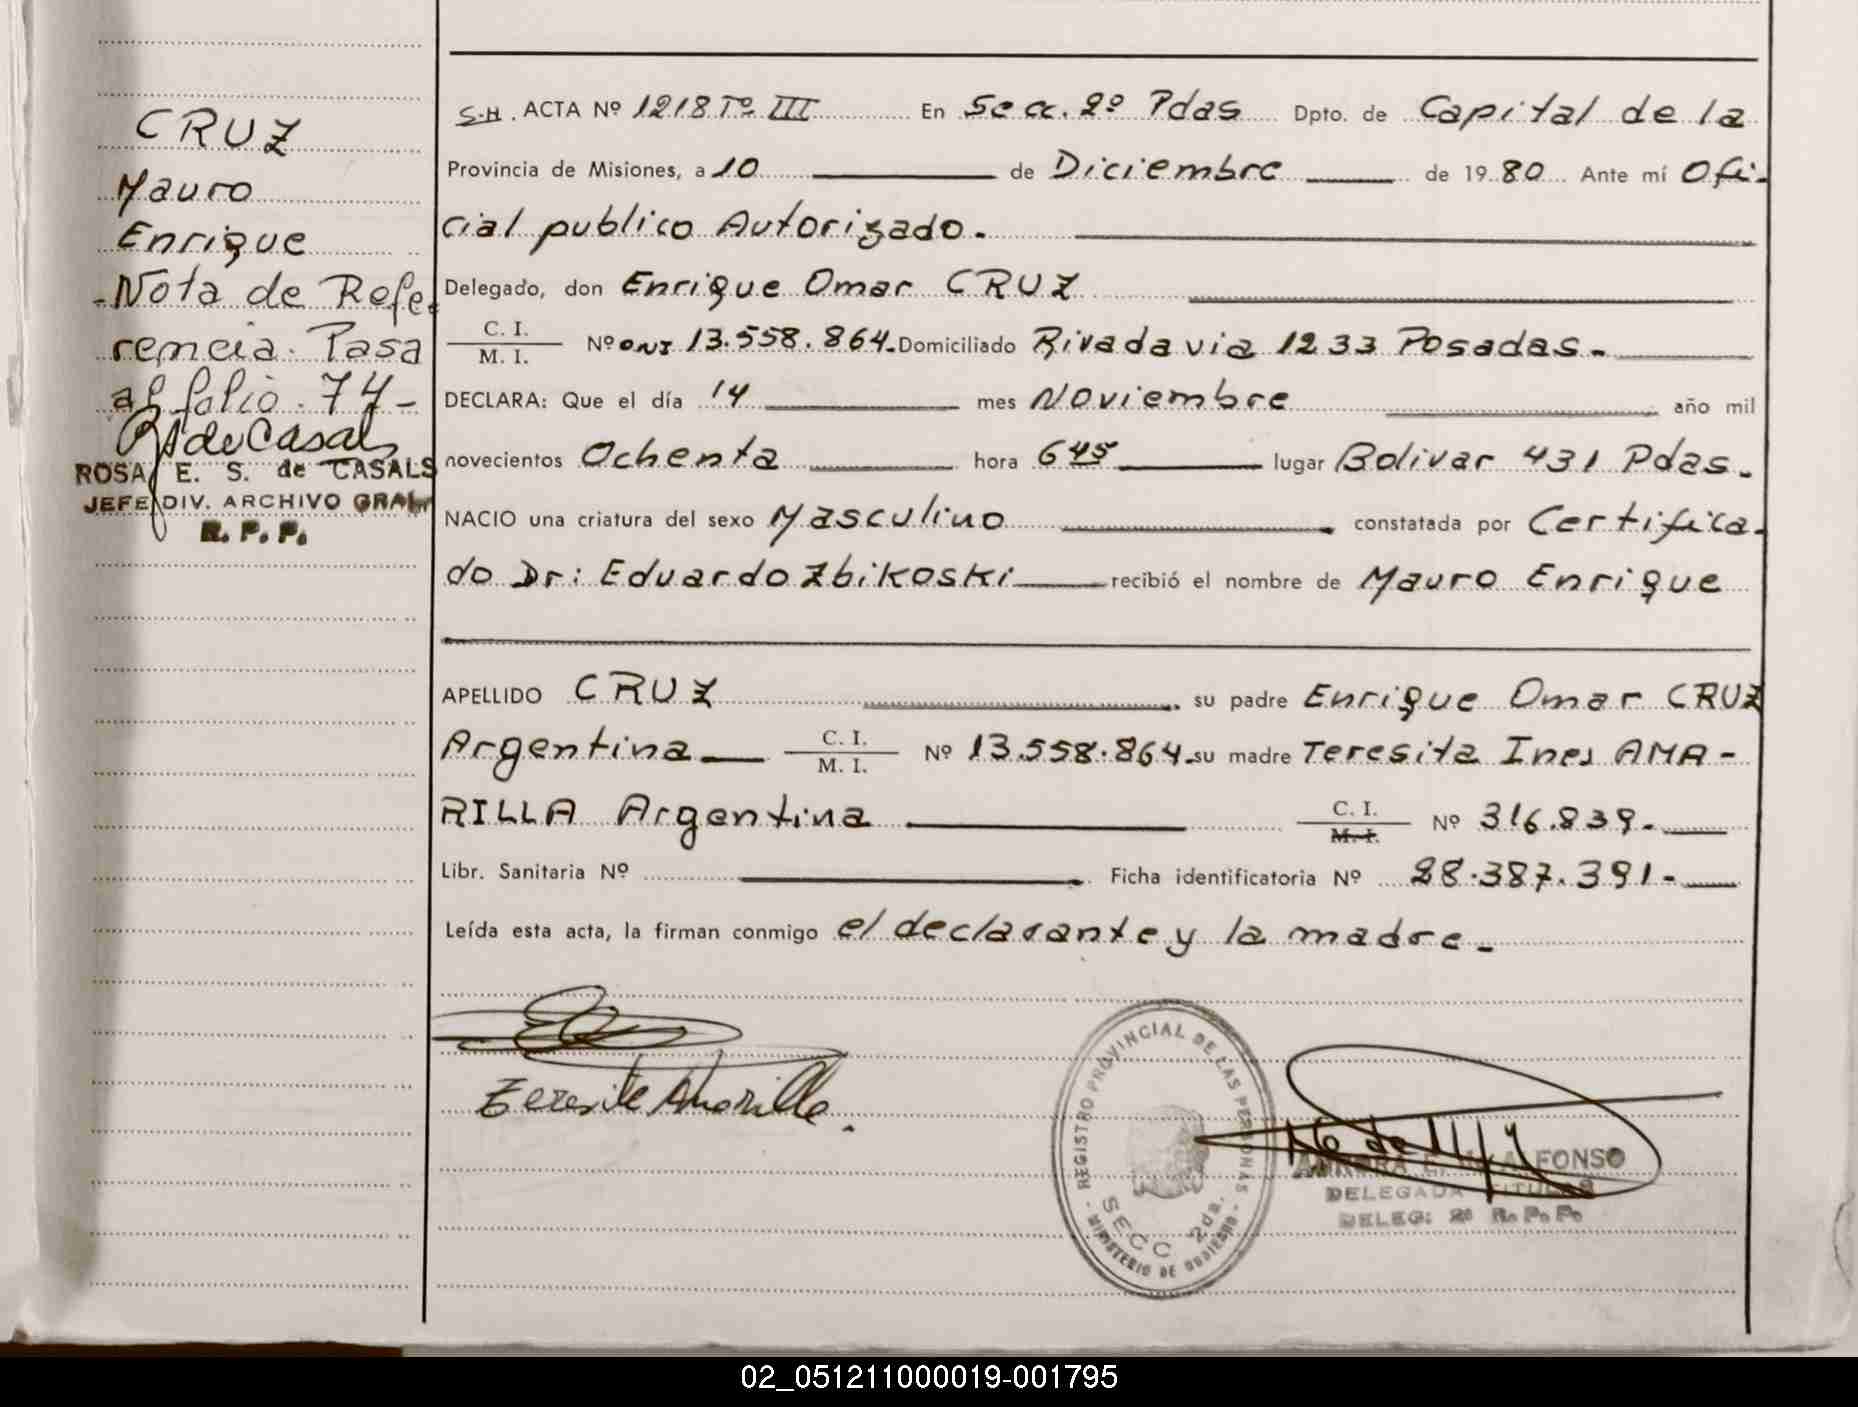 CRUZ
Mauro
Enrique
-Nota de Refe-
rencia. Pasa
al folio. 74-
RSdeCasals
ROSA E. S. de CASALS
JEFE DIV. ARCHIVO GRAL
R. P. P.
S.H. ACTA Nº 1218 Tº III En Secc. 2º Pdas Dpto. de Capital de la
Provincia de Misiones, a 10 de Diciembre de 1980 Ante mí Ofi-
cial publico Autorizado.
Delegado, don Enrique Omar CRUZ
C. I.
M. I. Nº DNI 13.558.864. Domiciliado Rivadavia 1233 Posadas.
DECLARA: Que el día 14 mes Noviembre año mil
novecientos Ochenta hora 645 lugar Bolivar 431 Pdas.
NACIO una criatura del sexo Masculino constatada por Certifica-
do Dr: Eduardo Zbikoski recibió el nombre de Mauro Enrique
APELLIDO CRUZ su padre Enrique Omar CRUZ
Argentina C. I.
M. I. Nº 13.558.864. su madre Teresita Ines AMA-
RILLA Argentina C. I.
M. I. Nº 316.839.
Libr. Sanitaria Nº Ficha identificatoria Nº 28.387.391.
Leída esta acta, la firman conmigo el declarante y la madre.
Teresita Amarilla.
REGISTRO PROVINCIAL DE LAS PERSONAS
SECC 2da.
- MINISTERIO DE GOBIERNO -
ALFONSO
DELEGADA TITULAR
DELEG: 2ª R. P. P.
02_051211000019-001795